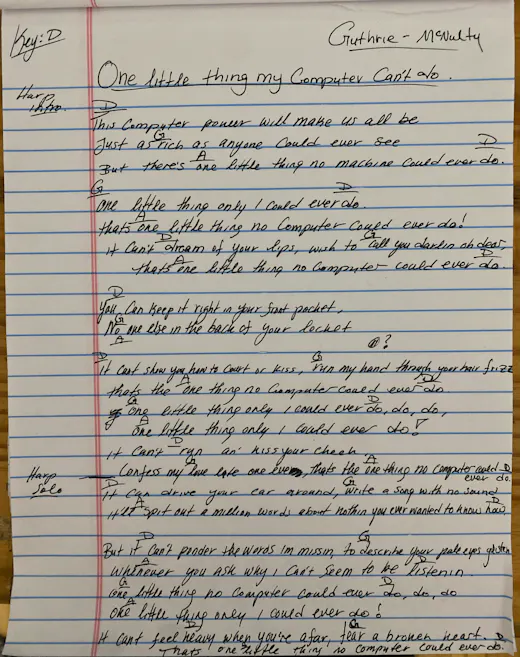 Key: D
Guthrie - McNulty
One little thing my Computer Can't do.
Harp
intro.
D
This Computer power will make us all be
G
Just as rich as anyone Could ever see
A D
But there's one little thing no machine Could ever do.
G D
one little thing only I could ever do.
A
thats one little thing no Computer Could ever do!
D G
it Can't dream of your lips, wish to Call you darlin oh dear,
A D
thats one little thing no Computer could ever do.
D
You Can keep it right in your front pocket,
G
No one else in the back of your locket
A
?
D G
it Cant show you how to Court or kiss, run my hand through your hair frizz
A D
thats the one thing no Computer Could ever do
G D
one little thing only I could ever do, do, do,
A
one little thing only I could ever do!
D
it Can't run an' kiss your cheek
G A
Confess my love late one eve, thats the one thing no computer could
D
ever do.
Harp
Solo
D G
it Can drive your car around, write a song with no sound
A D
it'll spit out a million words about nothin you ever wanted to know how
D G
But it Can't ponder the words im missin, to describe your pale eyes glisten
A D
Whenever you ask why I Can't Seem to be listenin
G D
one little thing no Computer Could ever do, do, do
A
one little thing only I could ever do!
D G
it Can't feel heavy when you're afar, fear a broken heart.
D
Thats one little thing no computer could ever do.